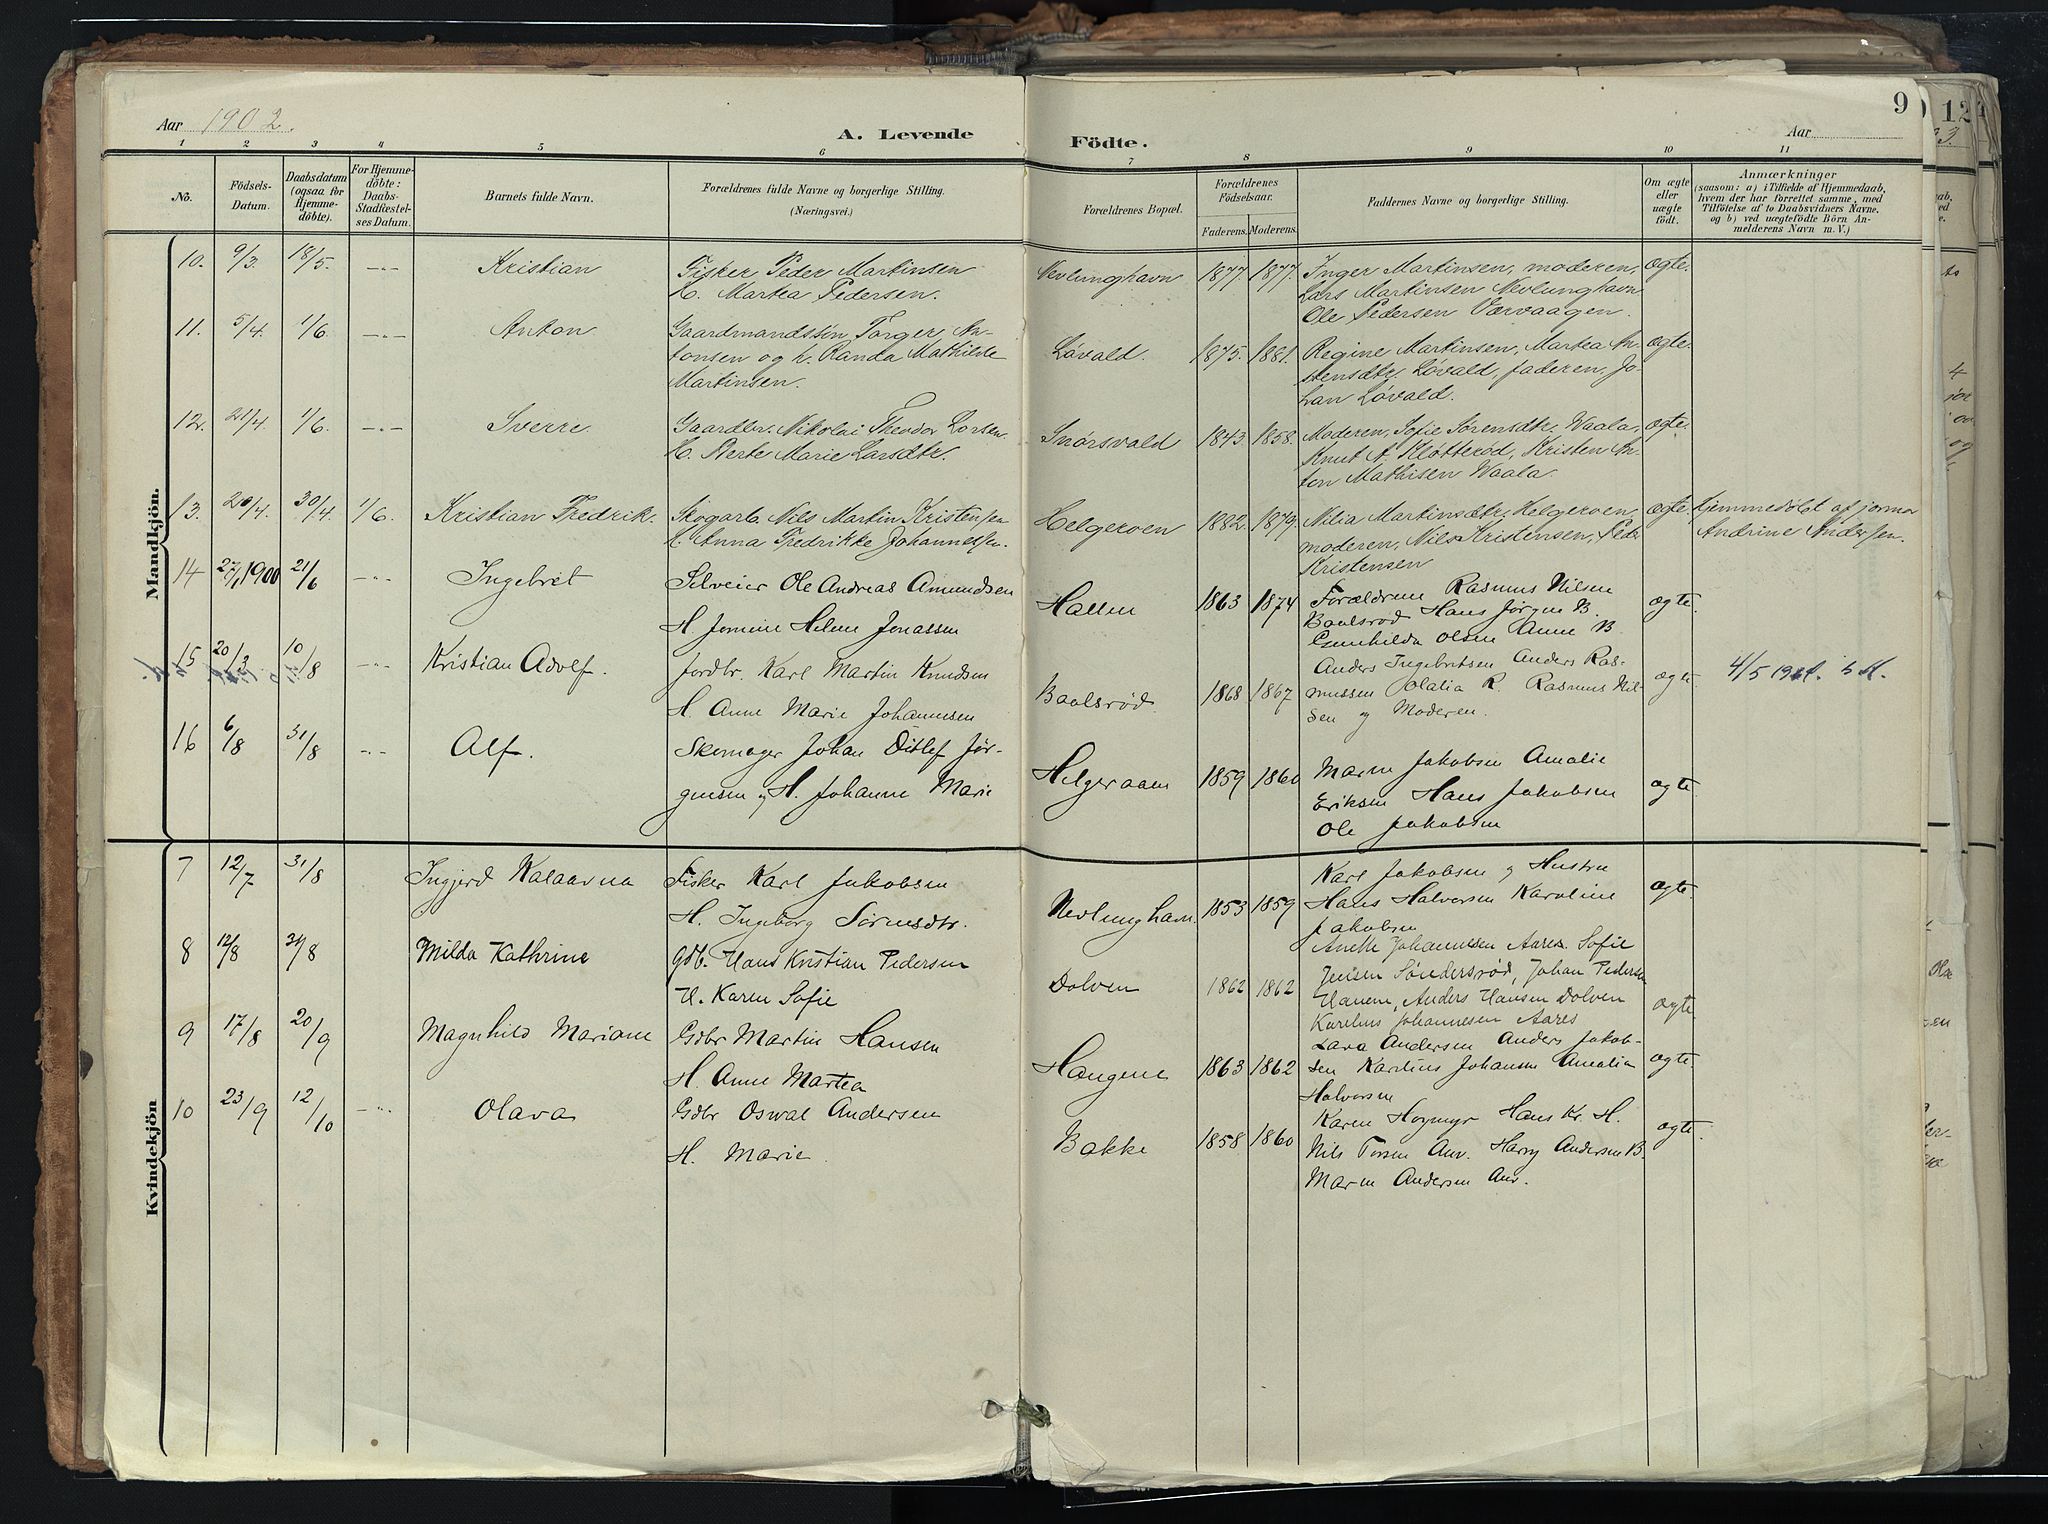 Aar 1902.
A. Levende
Födte.
Aar
9
12
1
2
3
4
5
6
7
8
9
10
11
No.
Födsels-
Datum.
Daabsdatum
(ogsaa för
Hjemme-
döbte).
For Hjemme-
döbte:
Daabs-
Stadfæstel-
ses Datum.
Barnets fulde Navn.
Forældrenes fulde Navne og borgerlige Stilling.
(Næringsvei.)
Forældrenes Bopæl.
Forældrenes
Födselsaar.
Faderens. Moderens.
Faddernes Navne og borgerlige Stilling.
Om ægte
eller
uægte
födt.
Anmærkninger
(saasom: a) i Tilfælde af Hjemmedaab,
hvem der har forrettet samme, med
Tilföielse af to Daabsvidners Navne,
og b) ved uægtefödte Börn An-
melderens Navn m. V.)
Mandkjön.
10. 9/3. 18/5. —"— Kristian
Fisker Peder Martinsen
H. Martea Pedersen.
Nevlunghavn 1877. 1877.
Inger Martinsen, moderen,
Lars Martinsen Nevlunghavn
Ole Pedersen Værvaagen.
ægte.
11. 5/4. 1/6. —"— Anton
Gaardmandssön Torger An-
tonsen og h. Randa Mathilde
Martinsen.
Løvald. 1875. 1881.
Regine Martinsen, Martea An-
stensdtr. Løvald, faderen, Jo-
han Løvald.
ægte.
12. 21/4. 1/6. —"— Sverre
Gaardbr. Nikolai Theodor Larsen
H. Berte Marie Larsdtr.
Snørsvald 1843. 1858.
Moderen, Sofie Sørensdtr. Waala,
Knut A. Kløtterød, Kristen An-
ton Mathisen Waala.
ægte.
13. 20/4. 30/4. 1/6. Kristian Fredrik.
Skogarb. Nils Martin Kristensen
H. Anna Fredrikke Johannessen.
Helgeroen 1882. 1879.
Nilia Martinsdtr. Helgeroen,
moderen, Nils Kristensen, Peder
Kristensen
ægte.
Hjemmedøbt af jormor
Andrine Andersen.
14 27/1 1900 21/6 —"— Ingebret
Selveier Ole Andreas Amundsen
H. Jomine Helene Jonassen
Hallen 1863 1874
Forældrene Rasmus Nilsen
Baalsrød Hans Jörgen B.
Gunhilda Olsen Anne B
ægte.
15 20/3 10/8 —"— Kristian Adolf.
Jordbr. Karl Martin Knudsen
H. Anne Marie Johannesen
Baalsrød. 1868 1867
Anders Ingebritsen Anders Ras-
mussen Olalia R. Rasmus Nil-
sen og Moderen.
ægte
16 6/8 31/8 —"— Alf.
Skomager Johan Ditlef Jör-
gensen og H. Johanne Marie
Helgeroaen 1859 1860
Maren Jakobsen Amalie
Eriksen Hans Jakobsen
Ole Jakobsen
ægte.
Kvindekjön
7 12/7 31/8 Ingjerd Kalaavna
Fisker Karl Jakobsen
H. Ingeborg Sörensdtr.
Nevlunghavn. 1853 1859
Karl Jakobsen og Hustru
Hans Halvorsen Karoline
Jakobsen
ægte.
8 12/8 31/8 Milda Kathrine
Gdb. Hans Kristian Pedersen
H. Karen Sofie
Dolven 1862 1862
Anette Johannesen Aares Sofie
Jensen Søndersrød, Johan Pedersen
Hanene, Anders Hansen Dolven
Karelius Johannesen Aares
ægte
9 17/8 20/9 Magnhild Mariane
Gdbr Martin Hansen
H. Anne Martea
Haugene 1863 1862
Lava Andersen Anders Jakob-
sen Karelius Johansen Amalia
Halvorsen
ægte.
10 23/9 12/10 —"— Olava
Gdbr Oswal Andersen
H. Marie.
Bakke 1858 1860
Karen Hogmyr Hans Kr. H.
Nils Torsen Anv. Harry Andersen B.
Maren Andersen Anv.
ægte.